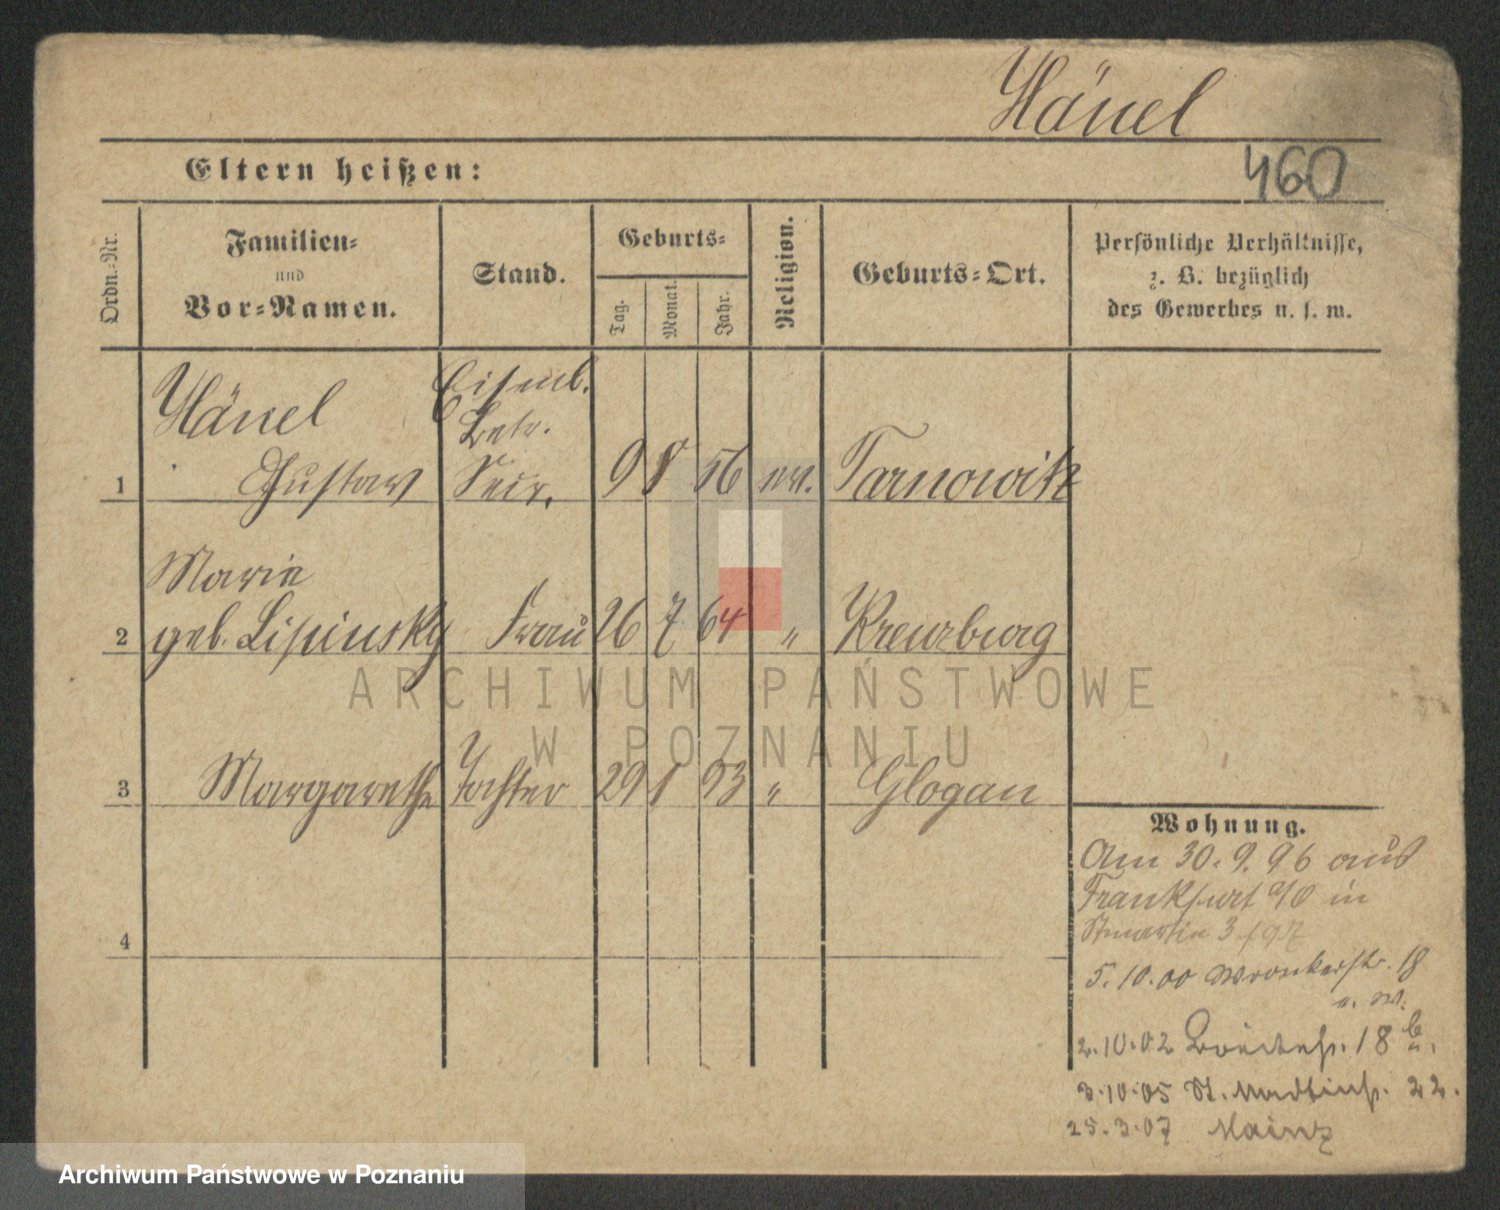 Hänel
Eltern heißen:
460
Ordn.-Nr.
Familien-
und
Vor-Namen.
Stand.
Geburts-
Tag.
Monat.
Jahr.
Religion.
Geburts-Ort.
Persönliche Verhältnisse,
z. B. bezüglich
des Gewerbes u. s. w.
Hänel Eisenb.
Betr.
1 Gustav Secr. 9 8 56 ev. Tarnowitz
Marie
2 geb. Lipinsky Frau 26 7 64 " Kreuzburg
3 Margarethe Tochter 29 1 93 " Glogau
4
Wohnung.
Am 30.9.96 aus
Frankfurt a/O in
St martin 3
5.10.00 Wronkerstr. 18
2.10.02 18 b.
3.10.05 St. Martinstr. 22.
25.3.07 Mainz
ARCHIWUM PAŃSTWOWE
W POZNANIU
Archiwum Państwowe w Poznaniu